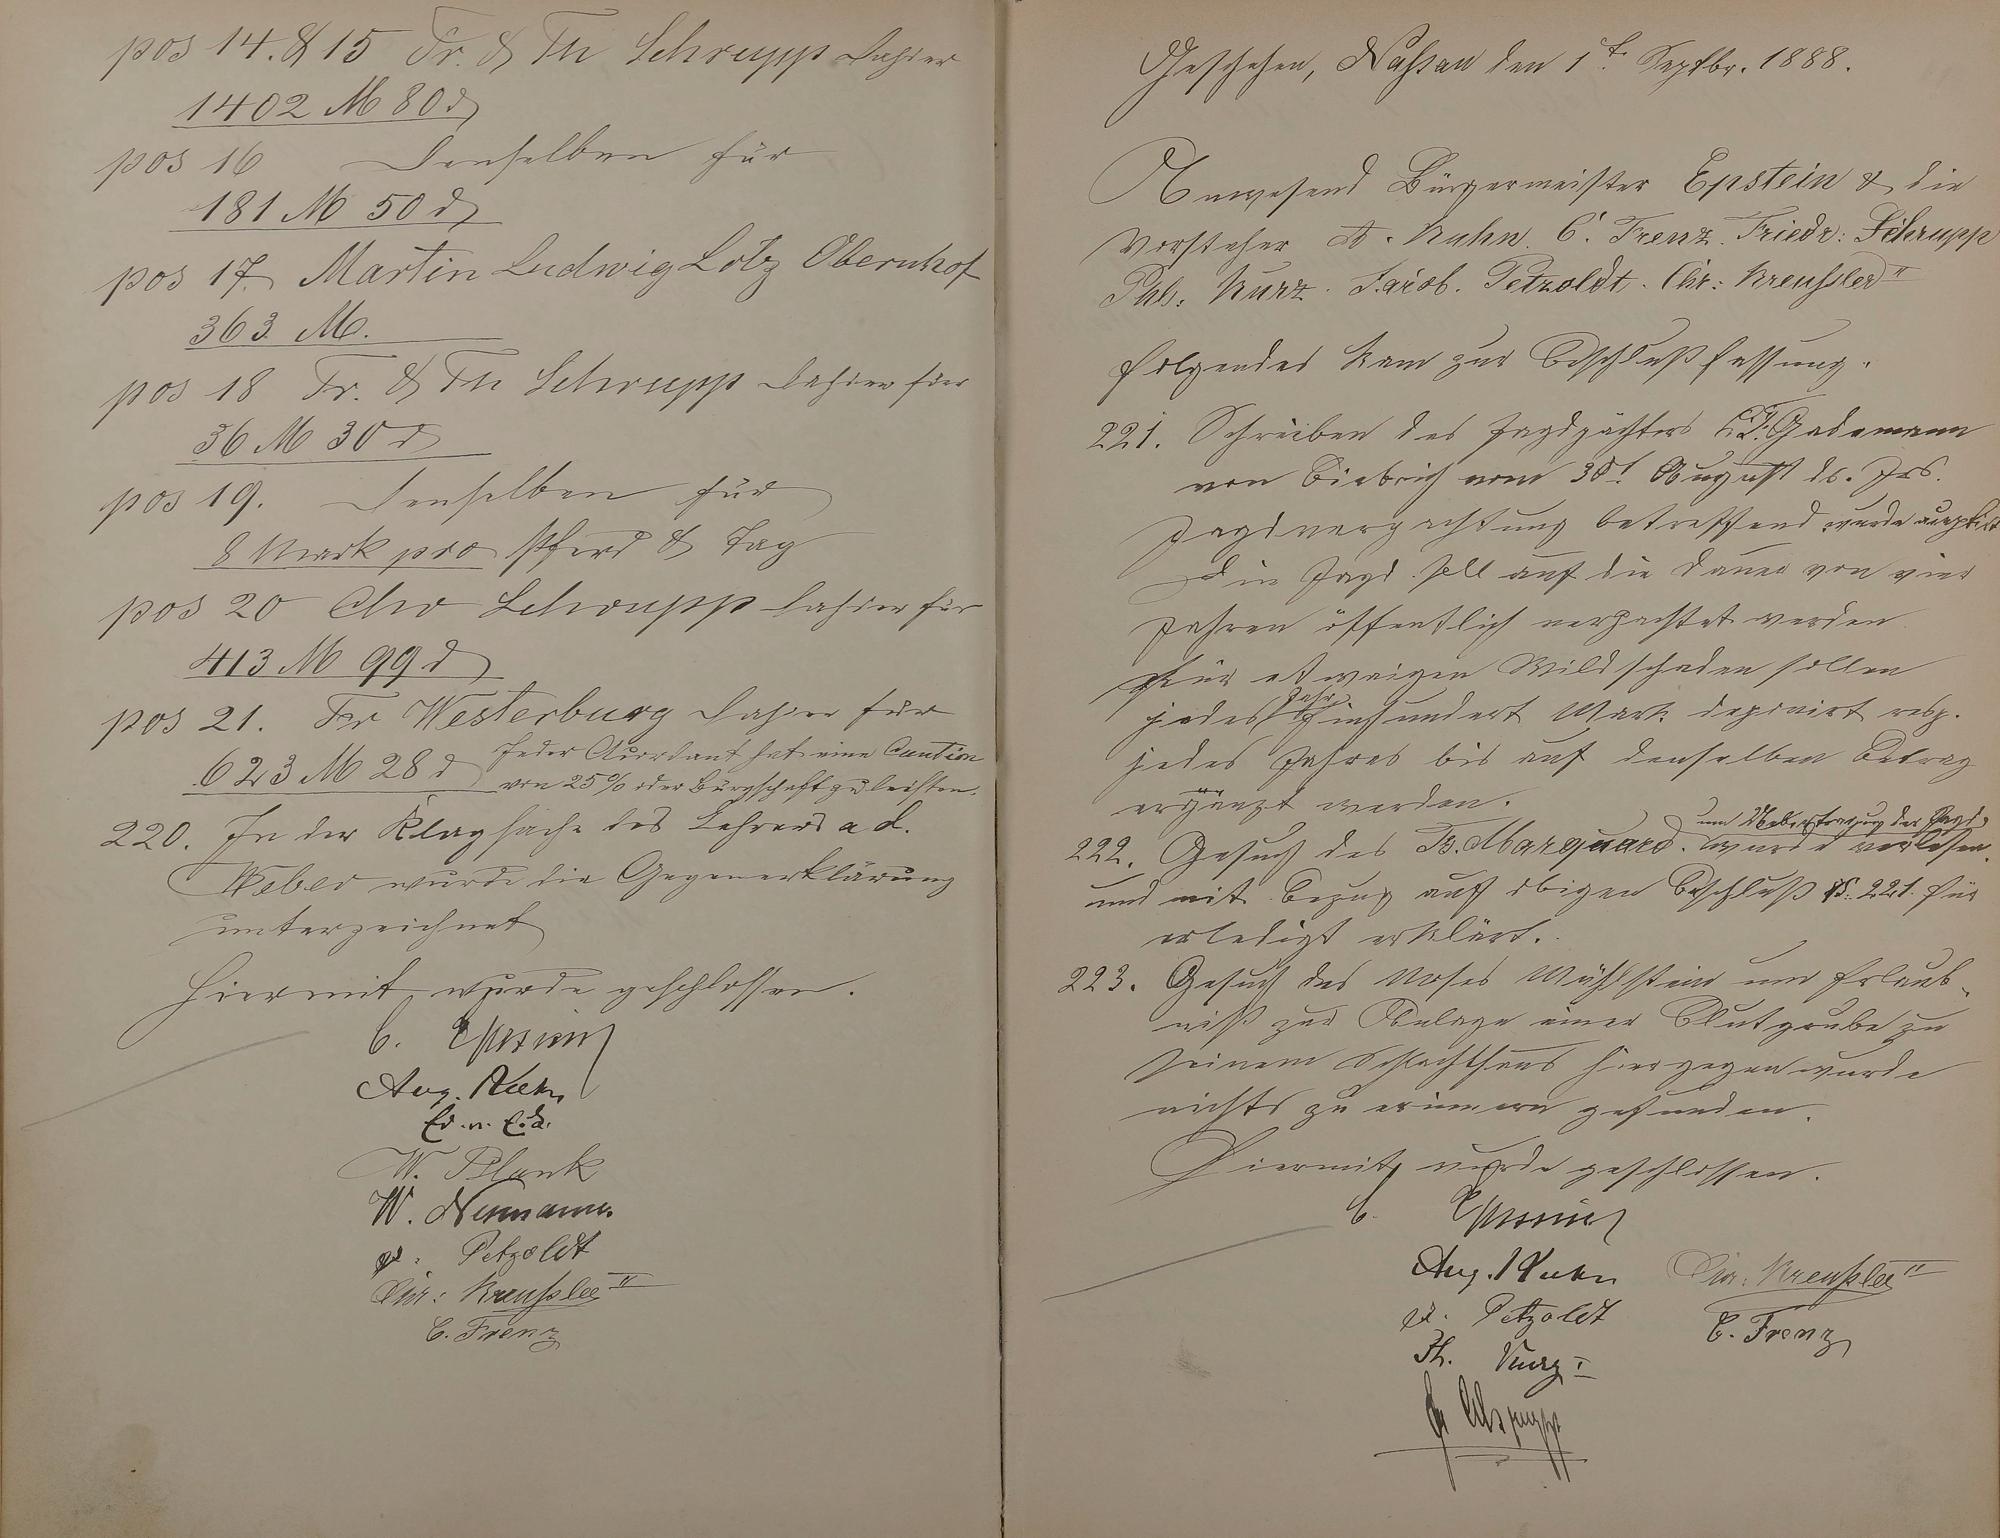 pos 14. & 15 Fr. & Th Schrupp dahier
1402 M 80 ₰
pos 16 Denselben für
181 M 50 ₰
pos 17. Martin Ludwig Lotz Obernhof
363 M.
pos 18 Fr. & Th Schrupp dahier für
36 M 30 ₰
pos 19. Denselben für
8 Mark pro Pferd & Tag
pos 20 Chr Schrupp dahier für
413 M 99 ₰
pos 21. Fr Westerburg dahier für
623 M 28 ₰ Jeder Accordant hat eine Caution
von 25 % oder Bürgschaft zu leisten.
220. In der Klagsache des Lehrers a d.
Weber wurde die Gegenerklärung
unterzeichnet
Hiermit wurde geschlossen.
C. Epstein
Aug. Kuhn
W. Plank
W. Neumann
J. Petzoldt
Chr: Kreußler II
C. Frenz
Geschehen, Nassau den 1t. Septbr. 1888.
Anwesend Bürgermeister Epstein & die
Vorsteher A. Kuhn. C. Frenz. Friedr: Schrupp
Phl. Kurz. Jacob. Petzoldt. Chr: Kreußler II
folgendes kam zur Beschlußfassung.
221. Schreiben des Jagdpächters Gademann
von Biebrich vom 30t August ds. Jrs.
Jagdverpachtung betreffend wurde
Die Jagd soll auf die Dauer von vier
Jahren öffentlich verpachtet werden
Für etwaigen Wildschaden sollen
jedes Jahr Einhundert Mark deponirt resp.
jedes Jahres bis auf denselben Betrag
ergänzt werden.
222. Gesuch des B. Marquard. um Uebertragung der Jagd, wurde verlesen
und mit Bezug auf obigen Beschluß §. 221. für
erledigt erklärt.
223. Gesuch des Moses Mühlstein um Erlaub-
niß zur Anlage einer Blutgrube zu
seinem Schlachthaus hiergegen wurde
nichts zu erinnern gefunden.
Hiermit wurde geschlossen.
C. Epstein
Aug. Kuhn Chr: Kreußler II
J. Petzoldt C. Frenz
Ph. Kurz I
Fr Schrupp